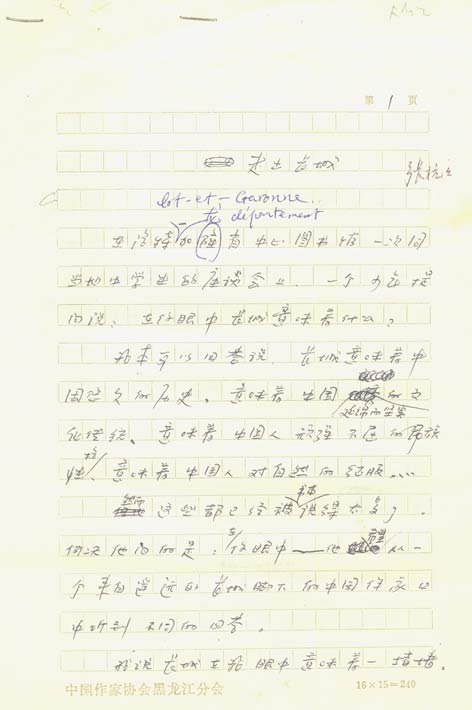 第 1 页
走出长城
张抗抗
Lot-et-Garonne
département
在洛特加隆省中心图书馆一次同
当地中学生的座谈会上，一个少年提
问说：在你眼中长城意味着什么？
我本可以回答说，长城意味着中
国悠久的历史，意味着中国的文
化传统，意味着中国人顽强不屈的民族
性格，意味着中国人对自然的征服……
然而这些都已经被书本说得太多了。
何况他问的是：在你眼中——他希望从一
个来自遥远的长城脚下的中国作家口
中听到不同的回答。
我说长城在我眼中意味着一堵墙。
中国作家协会黑龙江分会
16×15=240